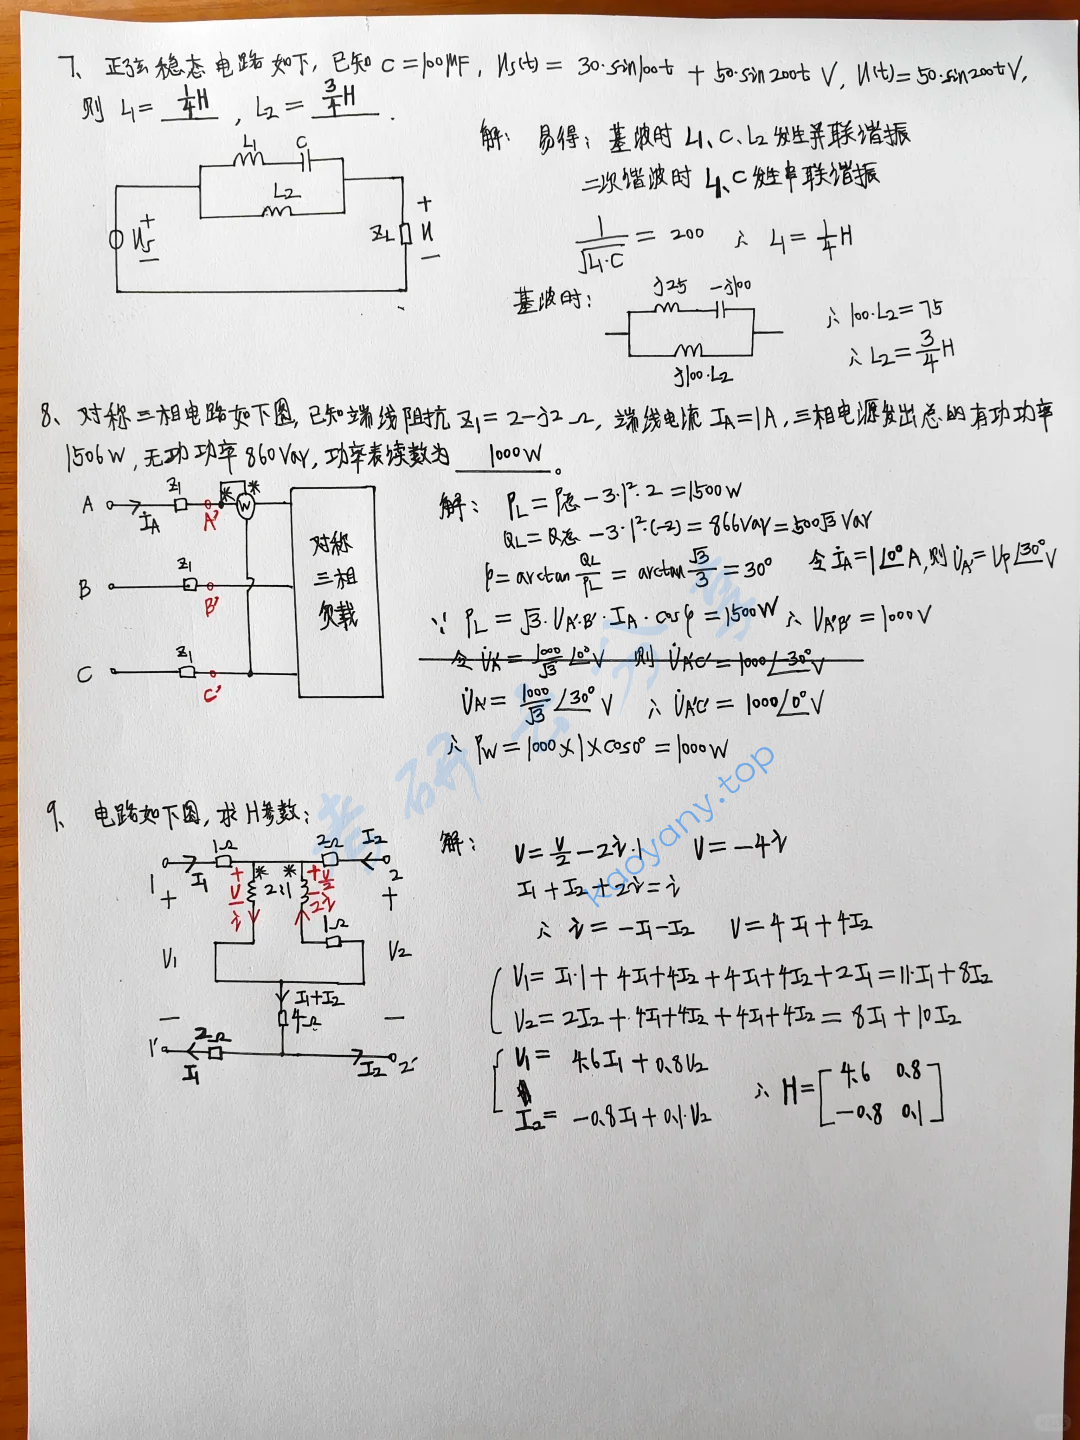 7、正弦稳态电路如下,已知 C=100μF, Us(t)= 30·sin100t + 50·sin200t V, U(t)=50·sin200t V,
则 L1= 1/4 H , L2= 3/4 H .
解: 易得: 基波时 L1、C、L2 发生并联谐振
二次谐波时 L1、C 发生串联谐振
1/√(L1·C) = 200 ∴ L1= 1/4 H
L1 C
L2
+ Us −
ZL + U −
基波时:
j25 -j100
j100·L2
∴ 100·L2=75
∴ L2= 3/4 H
8、对称三相电路如下图,已知端线阻抗 Z1=2-j2 Ω, 端线电流 IA=1A,三相电源发出总的有功功率
1506W,无功功率860Var,功率表读数为 1000W 。
A İA Z1 A' * * W
B Z1 B'
C Z1 C'
对称
三相
负载
解: PL=P总-3·1²·2=1500W
QL=Q总-3·1²·(-2)=866Var=500√3 Var
φ=arctan QL/PL = arctan √3/3 =30° 令İA=1∠0°A,则U̇A'=Up∠30°V
∵ PL=√3·UA'B'·IA·cosφ=1500W ∴ UA'B'=1000V
令 U̇A'= 1000/√3 ∠0°V 则 U̇A'C'=1000∠-30°V
U̇A'= 1000/√3 ∠30°V ∴ U̇A'C'=1000∠0°V
∴ PW=1000×1×cos0°=1000W
9、电路如下图,求H参数:
1 I1 1Ω 2Ω I2 2
+ + U − i * 2:1 * + U/2 − 2i +
1Ω
U1 U2
I1+I2
− 4Ω −
1' I1 2Ω I2 2'
解: U= U/2 -2i·1 U=-4i
I1+I2+2i=i
∴ i=-I1-I2 U=4I1+4I2
U1=I1·1+4I1+4I2+4I1+4I2+2I1=11·I1+8I2
U2=2I2+4I1+4I2+4I1+4I2=8I1+10I2
U1= 4.6I1+0.8U2
I2= -0.8I1+0.1·U2
∴ H=[4.6 0.8
-0.8 0.1]
考研云分享
kaoyany.top